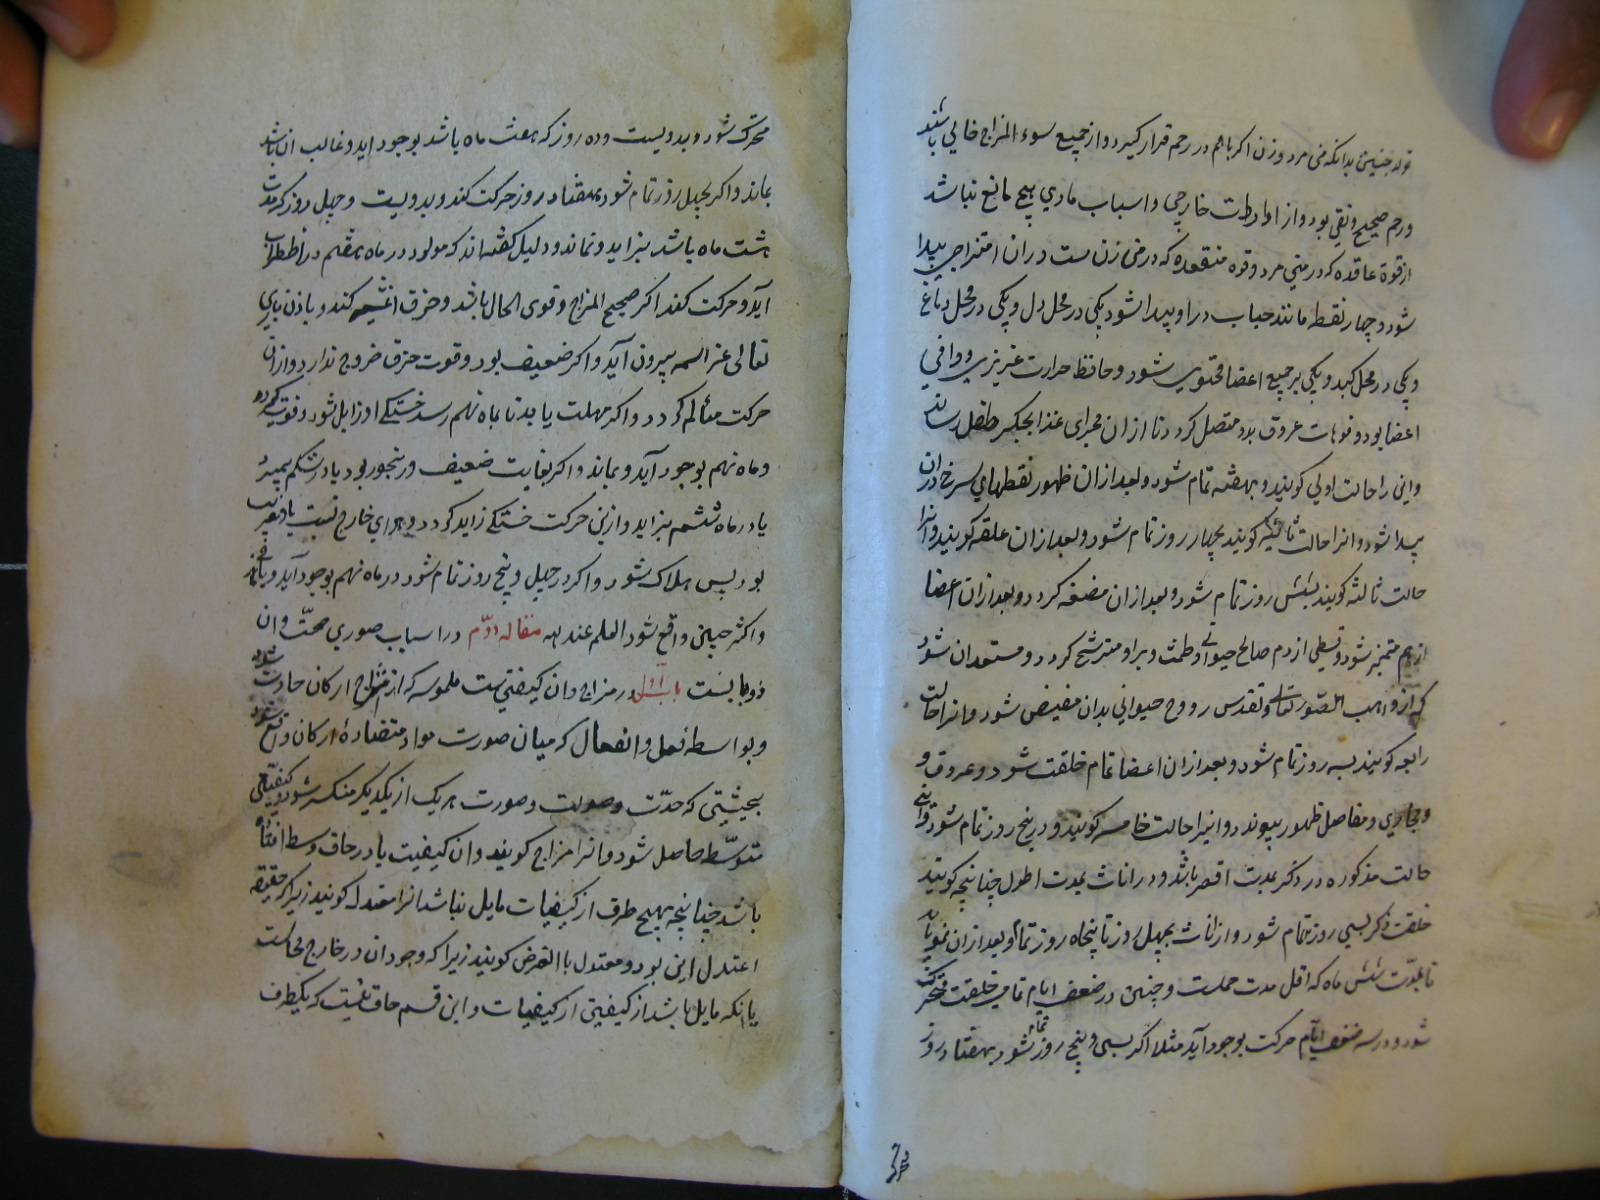 تولد جنین بدانکه منی مرد و زن اکر باهم در رحم قرار کیرد و از جمیع سوء المزاج خالی باشند
ورحم صحیح و نقی بود و از واردات خارجی و اسباب مادی هیچ مانع نباشد
از قوة عاقده که در منی مرد و قوه منعقده که در منی زن ست دران امتزاجی پیدا
شود و چهار نقطه مانند حباب در او پیدا شود یکی در محل دل و یکی در محل دماغ
ویکی در محل کبد و یکی بر جمیع اعضا محتوی شود و حافظ حرارت غریزی و واقی
اعضا بود و فوهات عروق بدو متصل کردد تا از ان مجرای غذا بجکر طفل رساند
واین را حالت اولی کویند و بهفته تمام شود و بعد ازان ظهور نقطهای سرخ دران
پیدا شود و انرا حالت ثانیه کویند بچهار روز تمام شود و بعد ازان علقه کویند و انرا
حالت ثالثه کویند بشش روز تمام شود و بعد ازان مضغه کردد و بعد ازان اعضا
ازهم متمیز شود و قسطی از دم صالح حیوانی و طمث و برا و مترشح کردد و مستعد ان شود
که از واهب الصور تعالی و تقدس روح حیوانی بدان مفیض شود و انرا حالت
رابعه کویند بسه روز تمام شود و بعد ازان اعضا تمام خلقت شود و عروق و
ومجاری و مفاصل ظهور پیوندد و انیرا حالت خامسه کویند و در پنج روز تمام شود و این
حالت مذکوره در ذکر بمدت اقصر باشد و در اناث بمدت اطول چنانچه کویند
خلقت ذکر بسی روز تمام شود و از اناث بچهل روز تا پنجاه روز تمام و بعد ازان نمو یابد
تا بمدت شش ماه که اقل مدت حملست و جنین در ضعف ایام تمامی خلقت متحرک
شود و در سه ضعف ایام حرکت بوجود آید مثلا اکر بسی و پنج روز تمام شود بهفتاد روز
متحرک شود و بدویست و ده روز که هفت ماه باشد بوجود اید و غالب ان باشد
بماند و اکر بچهل روز تمام شود بهشتاد روز حرکت کند و بدویست و چهل روز که مدت
هشت ماه باشد بزاید و نماند و دلیل کفته اند که مولود در ماه هفتم در اضطراب
آید و حرکت کند اکر صحیح المزاج و قوی الحال باشد و خرق اغشیه کند و باذن باری
تعالی عز اسمه بیرون آید و اکر ضعیف بود و قوت خرق خروج ندارد و ازان
حرکت متألم کردد و اکر مهلت یابد تا بماه نهم رسد خستکی او زایل شود و قوت کیرد
و ماه نهم بوجود آید و بماند و اکر بغایت ضعیف و رنجور بود یا در شکم بمیرد
یا در ماه هشتم بزاید و ازین حرکت خستکی زاید کردد و هوای خارج نسبت با و غریب
بود پس هلاک شود و اکر در چهل و پنج روز تمام شود در ماه نهم بوجود آید و بماند
و اکثر چنین واقع شود العلم عند الله مقاله دوم در اسباب صوری صحت و ان
دو بابست باب اول در مزاج و ان کیفیتی ست ملموسه که از امتزاج ارکان حادث شود
و بواسطه فعل و انفعال که میان صورت مواد متضاده ارکان واقع شود
بحیثیتی که حدت و صولت و صورت هریک از یکدیکر منکسر شود و کیفیتی
متوسط حاصل شود و انرا مزاج کویند و ان کیفیت یا در حاق وسط افتاده
باشد چنانچه بهیچ طرف از کیفیات مایل نباشد انرا معتدل کویند زیرا که حقیقه
اعتدال این بود و معتدل بالفرض کویند زیرا که وجود ان در خارج محالست
یا انکه مایل باشد از کیفیتی از کیفیات و این قسم که یکطرف